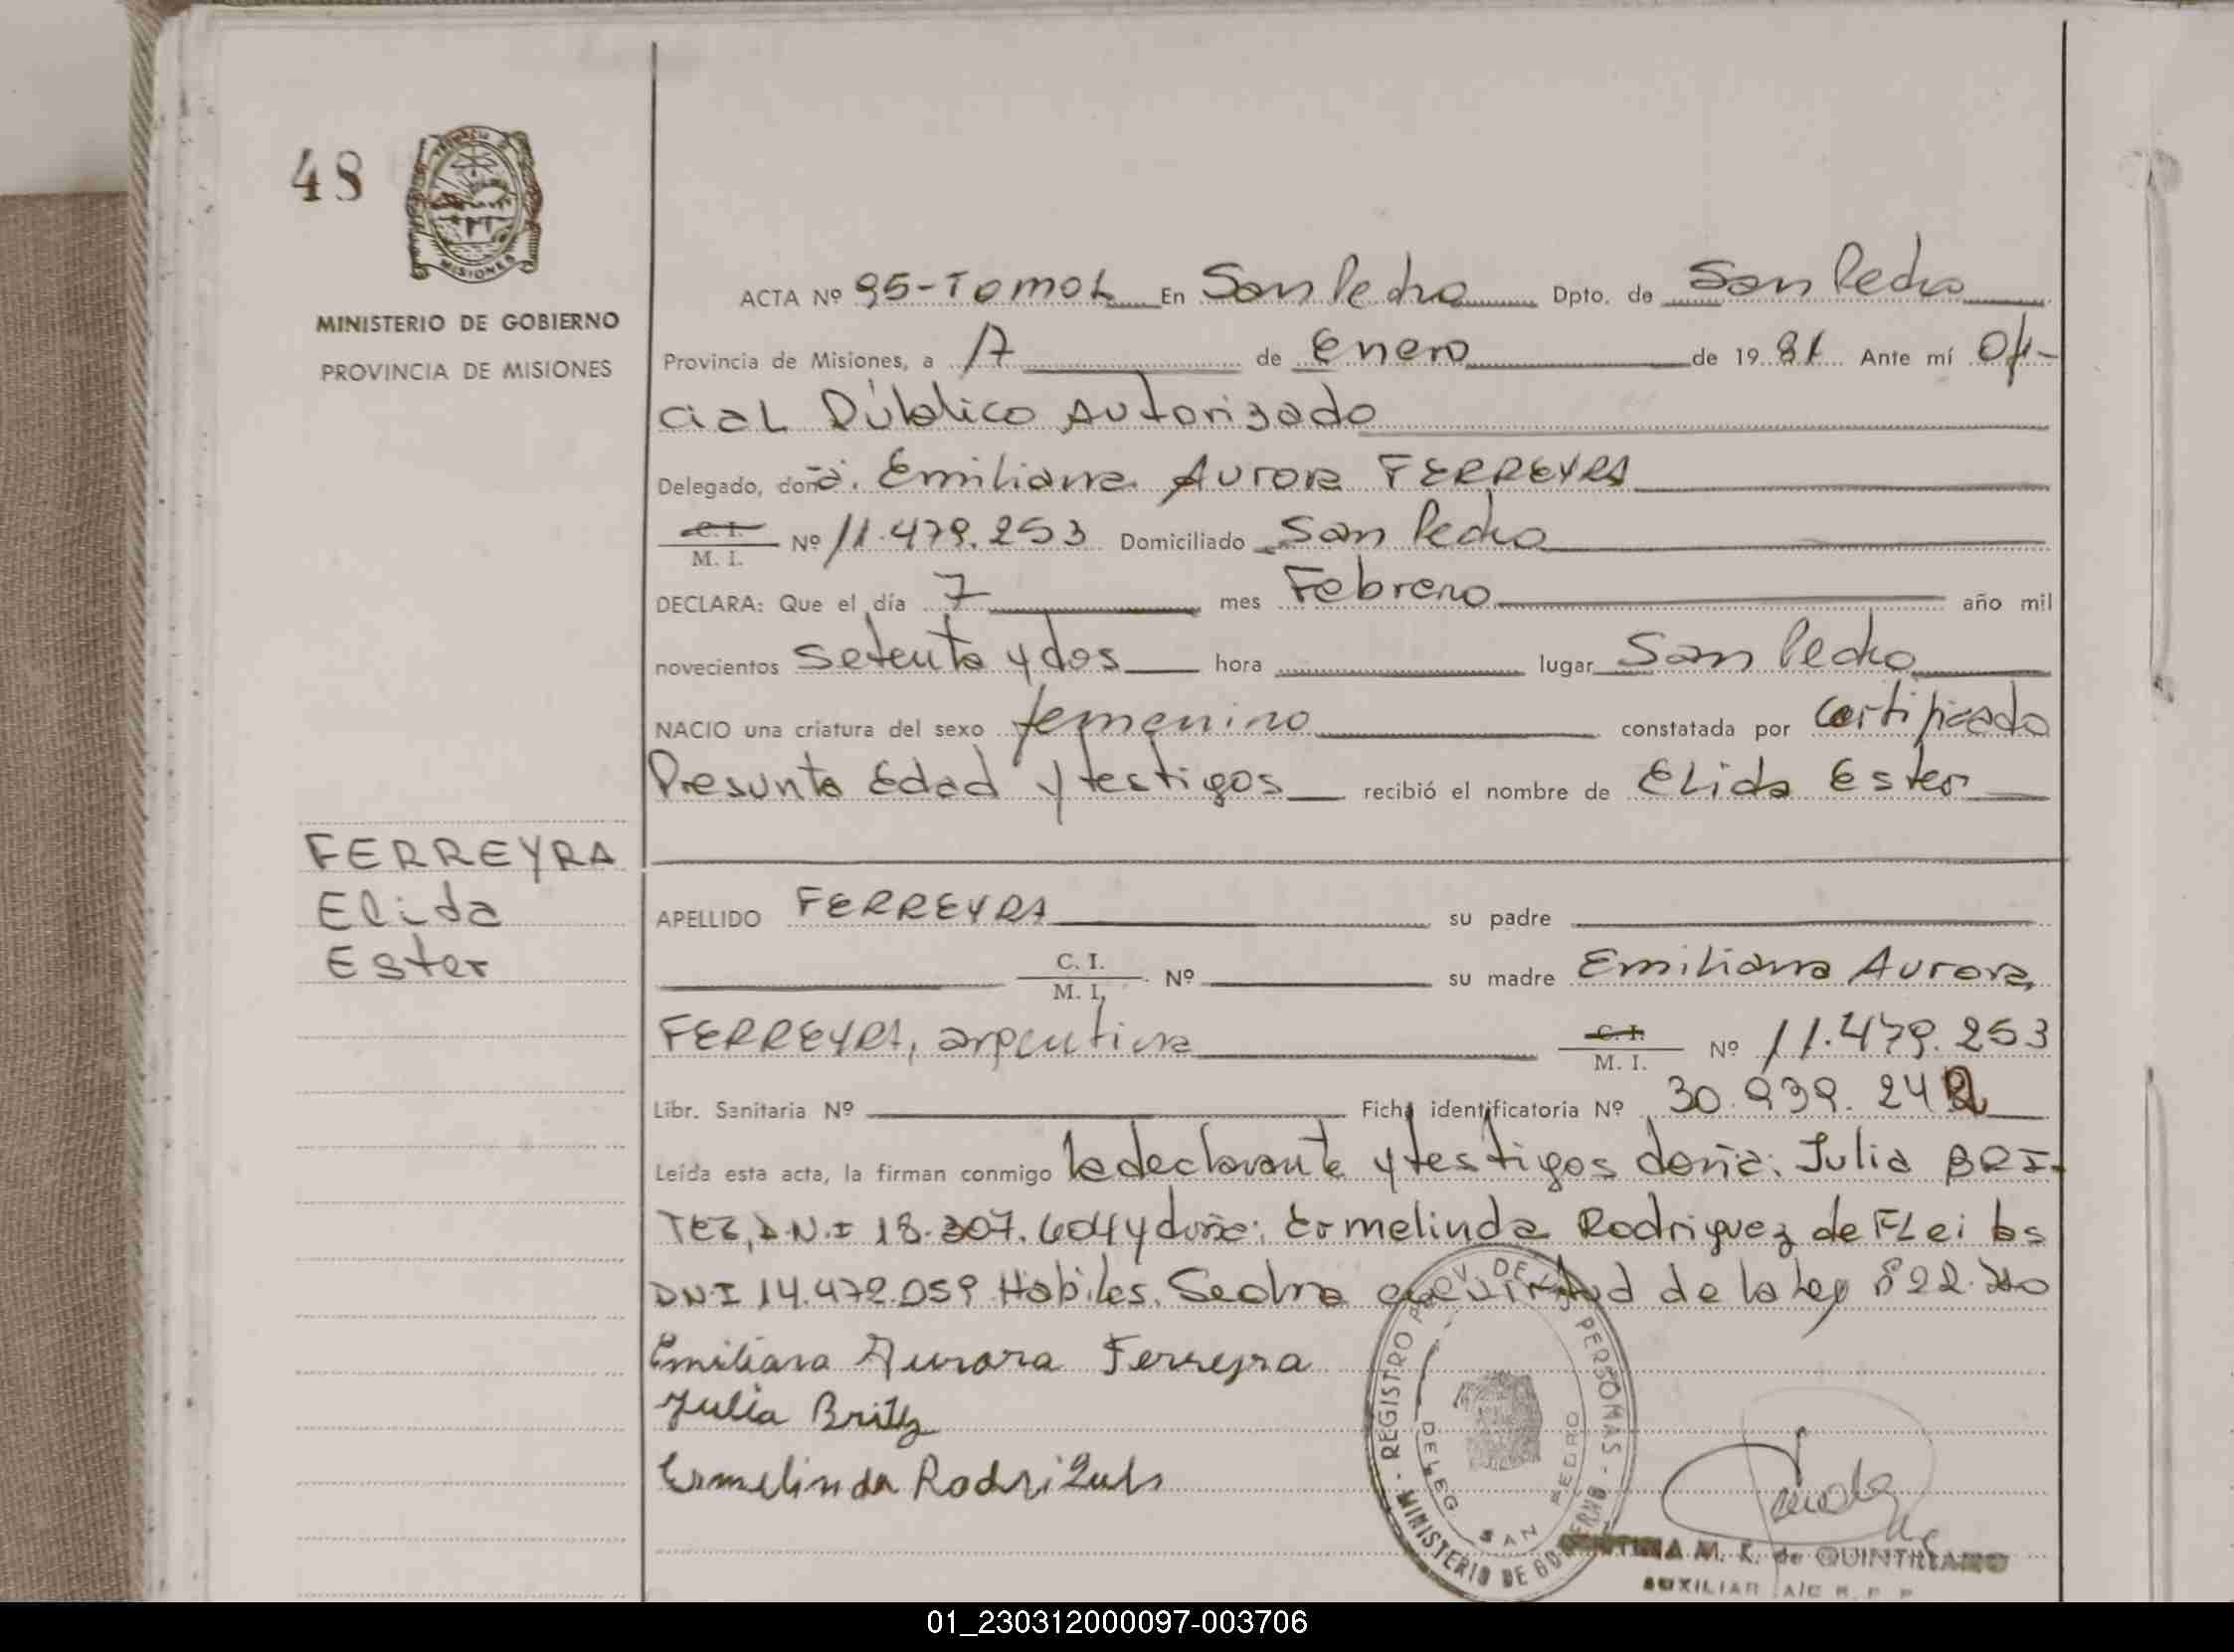 48
PROVINCIA
MISIONES
MINISTERIO DE GOBIERNO
PROVINCIA DE MISIONES
ACTA Nº 95-Tomo I En San Pedro Dpto. de San Pedro
Provincia de Misiones, a 17 de Enero de 1981 Ante mí Ofi-
cial Público Autorizado
Delegado, doña. Emiliana Aurora FERREYRA
C. I.
M. I. Nº 11.479.253 Domiciliado San Pedro
DECLARA: Que el día 7 mes Febrero año mil
novecientos setenta y dos hora lugar San Pedro
NACIO una criatura del sexo femenino constatada por certificado
Presunta Edad y testigos recibió el nombre de Elida Ester
FERREYRA
Elida
Ester
APELLIDO FERREYRA su padre
C. I.
M. I. Nº su madre Emiliana Aurora,
FERREYRA, argentina C. I.
M. I. Nº 11.479.253
Libr. Sanitaria Nº Ficha identificatoria Nº 30.939.242
Leída esta acta, la firman conmigo la declarante y testigos doña: Julia BRI-
TEZ, D.N.I 18.307.604 y doña: Ermelinda Rodriguez de Fleibs
DNI 14.472.059 Habiles. Se obra en virtud de la Ley
Emiliana Aurora Ferreyra
Julia Britz
Ermelinda Rodri
REGISTRO PROV. DE LAS PERSONAS - MINISTERIO DE GOBIERNO -
DELEG. SAN PEDRO
M. K. de QUINTILIANO
AUXILIAR A/C R. P. P.
01_230312000097-003706